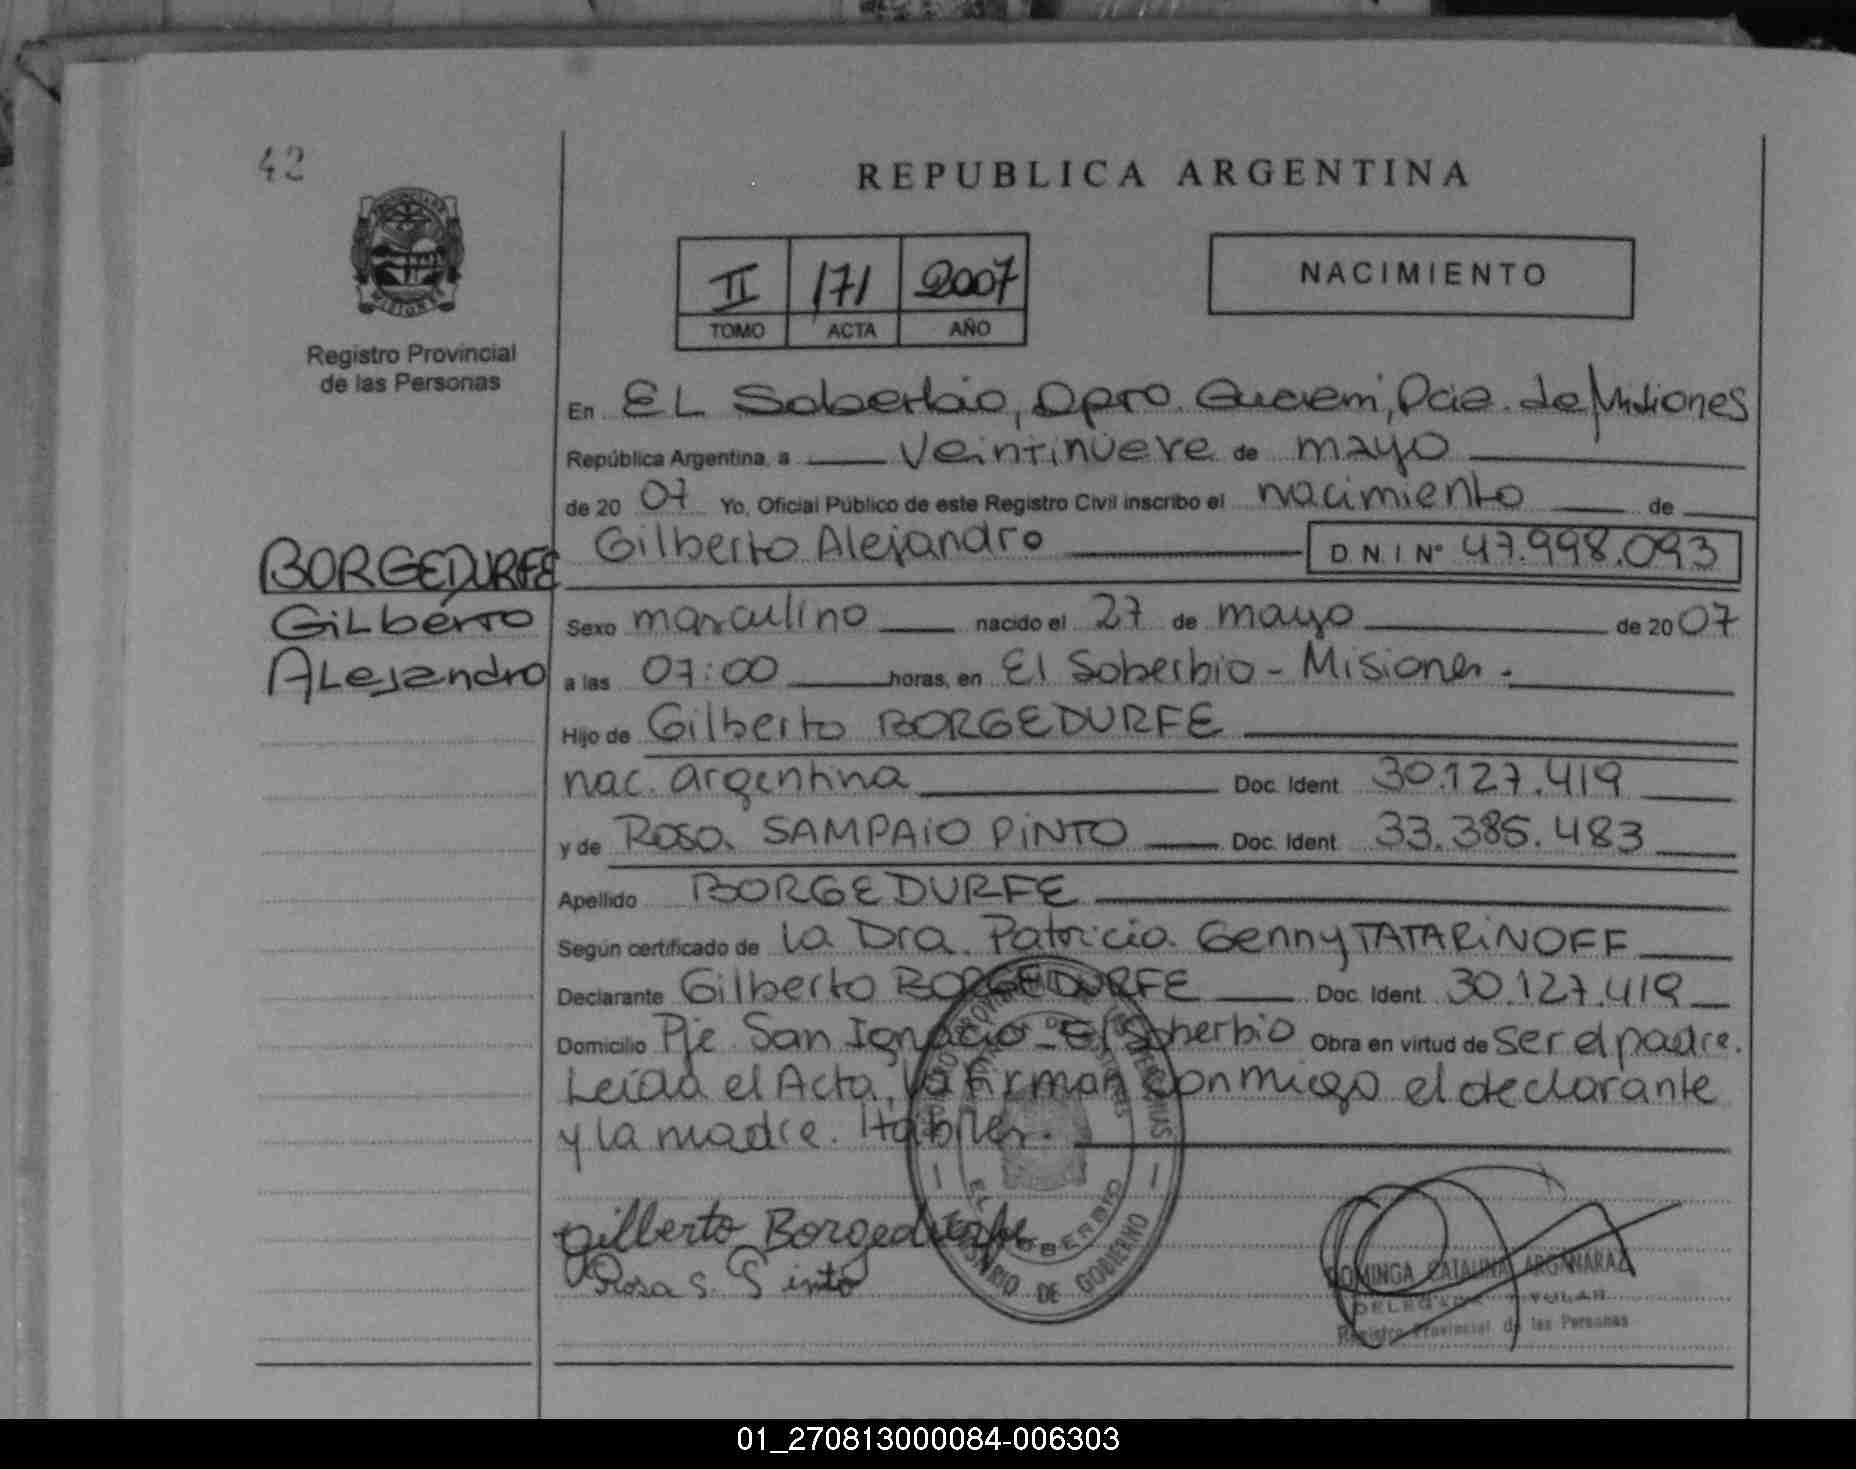 42
REPUBLICA ARGENTINA
II 171 2007
TOMO ACTA AÑO
NACIMIENTO
Registro Provincial
de las Personas
En EL Soberbio, Dpto. Guaraní, Pcia. de Misiones
República Argentina, a veintinueve de mayo
de 2007 Yo, Oficial Público de este Registro Civil inscribo el nacimiento de
Gilberto Alejandro DNI Nº 47.998.093
BORGEDURFE
GiLberto
ALejandro
Sexo masculino nacido el 27 de mayo de 2007
a las 07:00 horas, en El Soberbio - Misiones.
Hijo de Gilberto BORGEDURFE
nac. argentina Doc. Ident. 30.127.419
y de Rosa SAMPAiO PiNTO Doc. Ident. 33.385.483
Apellido BORGEDURFE
Según certificado de la Dra. Patricia Genny TATARiNOFF
Declarante Gilberto BORGEDURFE Doc. Ident. 30.127.419
Domicilio Pje San Ignacio - El Soberbio Obra en virtud de ser el padre.
Leída el Acta, la firman conmigo el declarante
y la madre. Hábiles.
Gilberto Borgedurfe
Rosa S. Pinto
EL SOBERBIO
DE GOBIERNO
DOMINGA CATALINA ARGAÑARAZ
DELEGADA TITULAR
Registro Provincial de las Personas
01_270813000084-006303